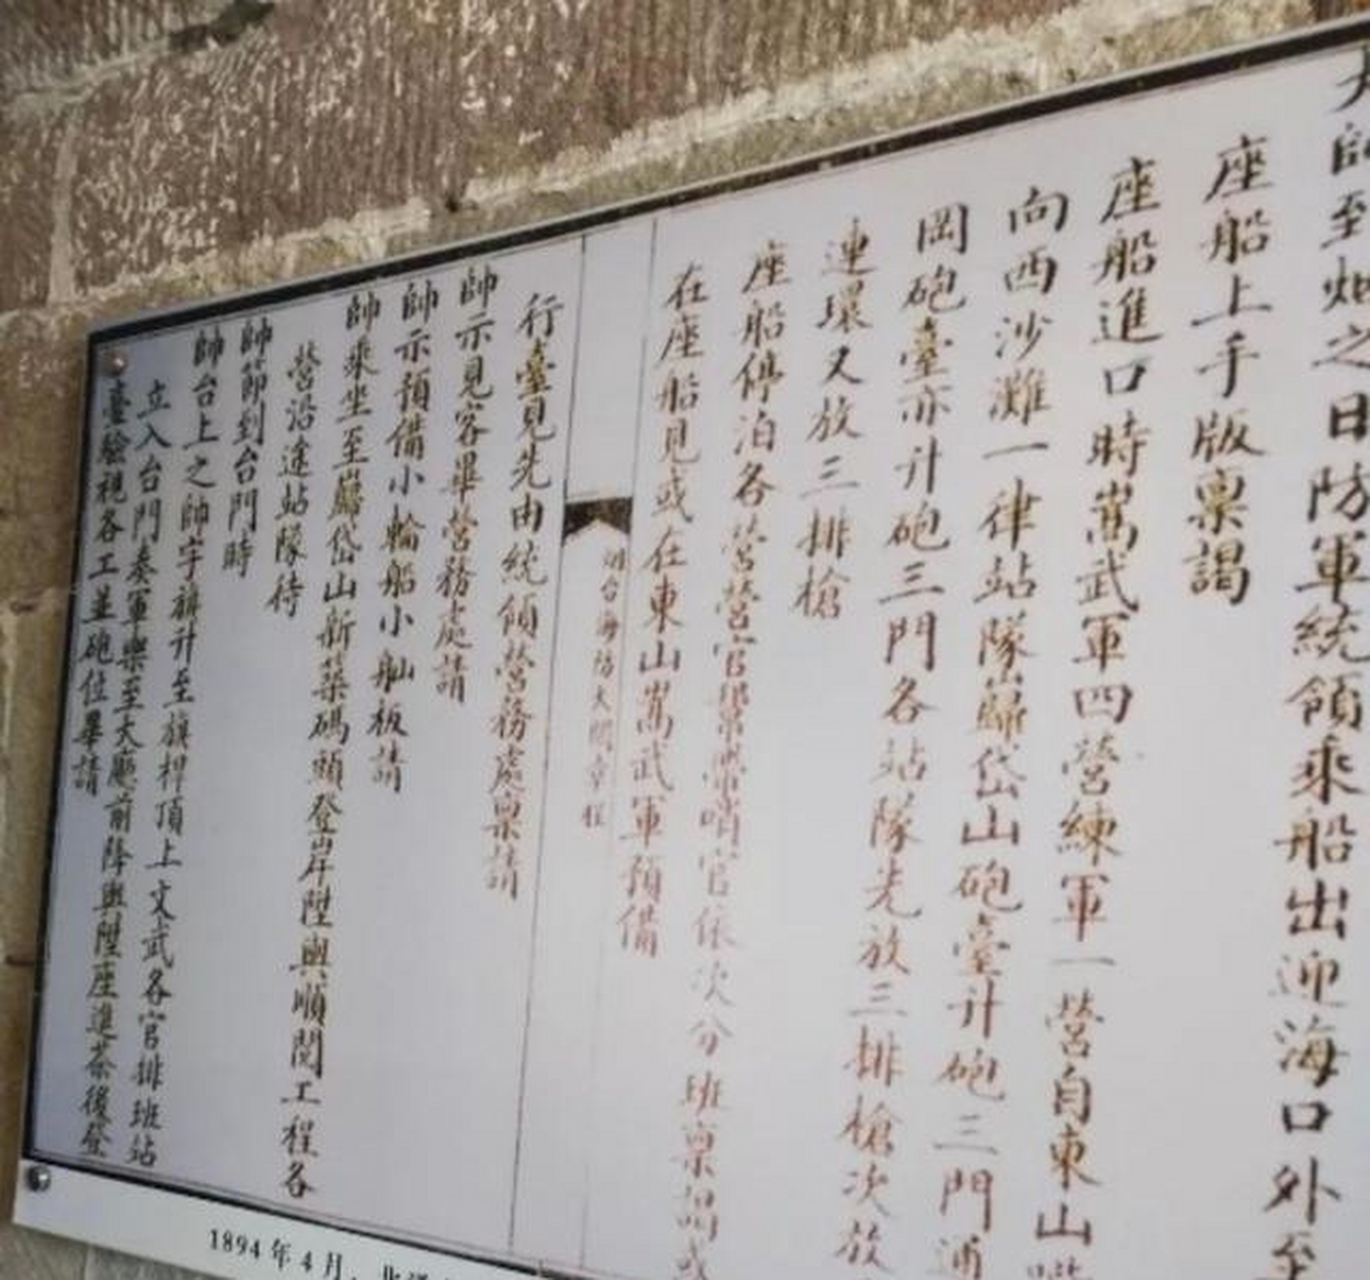 大帥至烟之日防軍統領乘船出迎海口外至
座船上手版禀謁
座船進口時嵩武軍四營練軍一營自東山
向西沙灘一律站隊巋岱山砲臺升砲三門通
岡砲臺亦升砲三門各站隊先放三排槍次放
連環又放三排槍
座船停泊各營營官幫帶哨官依次分班禀謁或
在座船見或在東山嵩武軍預備
烟台海防大閱章程
行臺見先由統領營務處禀請
帥示見客畢營務處請
帥示預備小輪船小舢板請
帥乘坐至巋岱山新築碼頭登岸陞輿順閱工程各
營沿途站隊待
帥節到台門時
帥台上之帥字旗升至旗桿頂上文武各官排班站
立入台門奏軍樂至大廳前降輿陞座進茶後登
臺驗視各工並砲位畢請
1894年4月，北洋